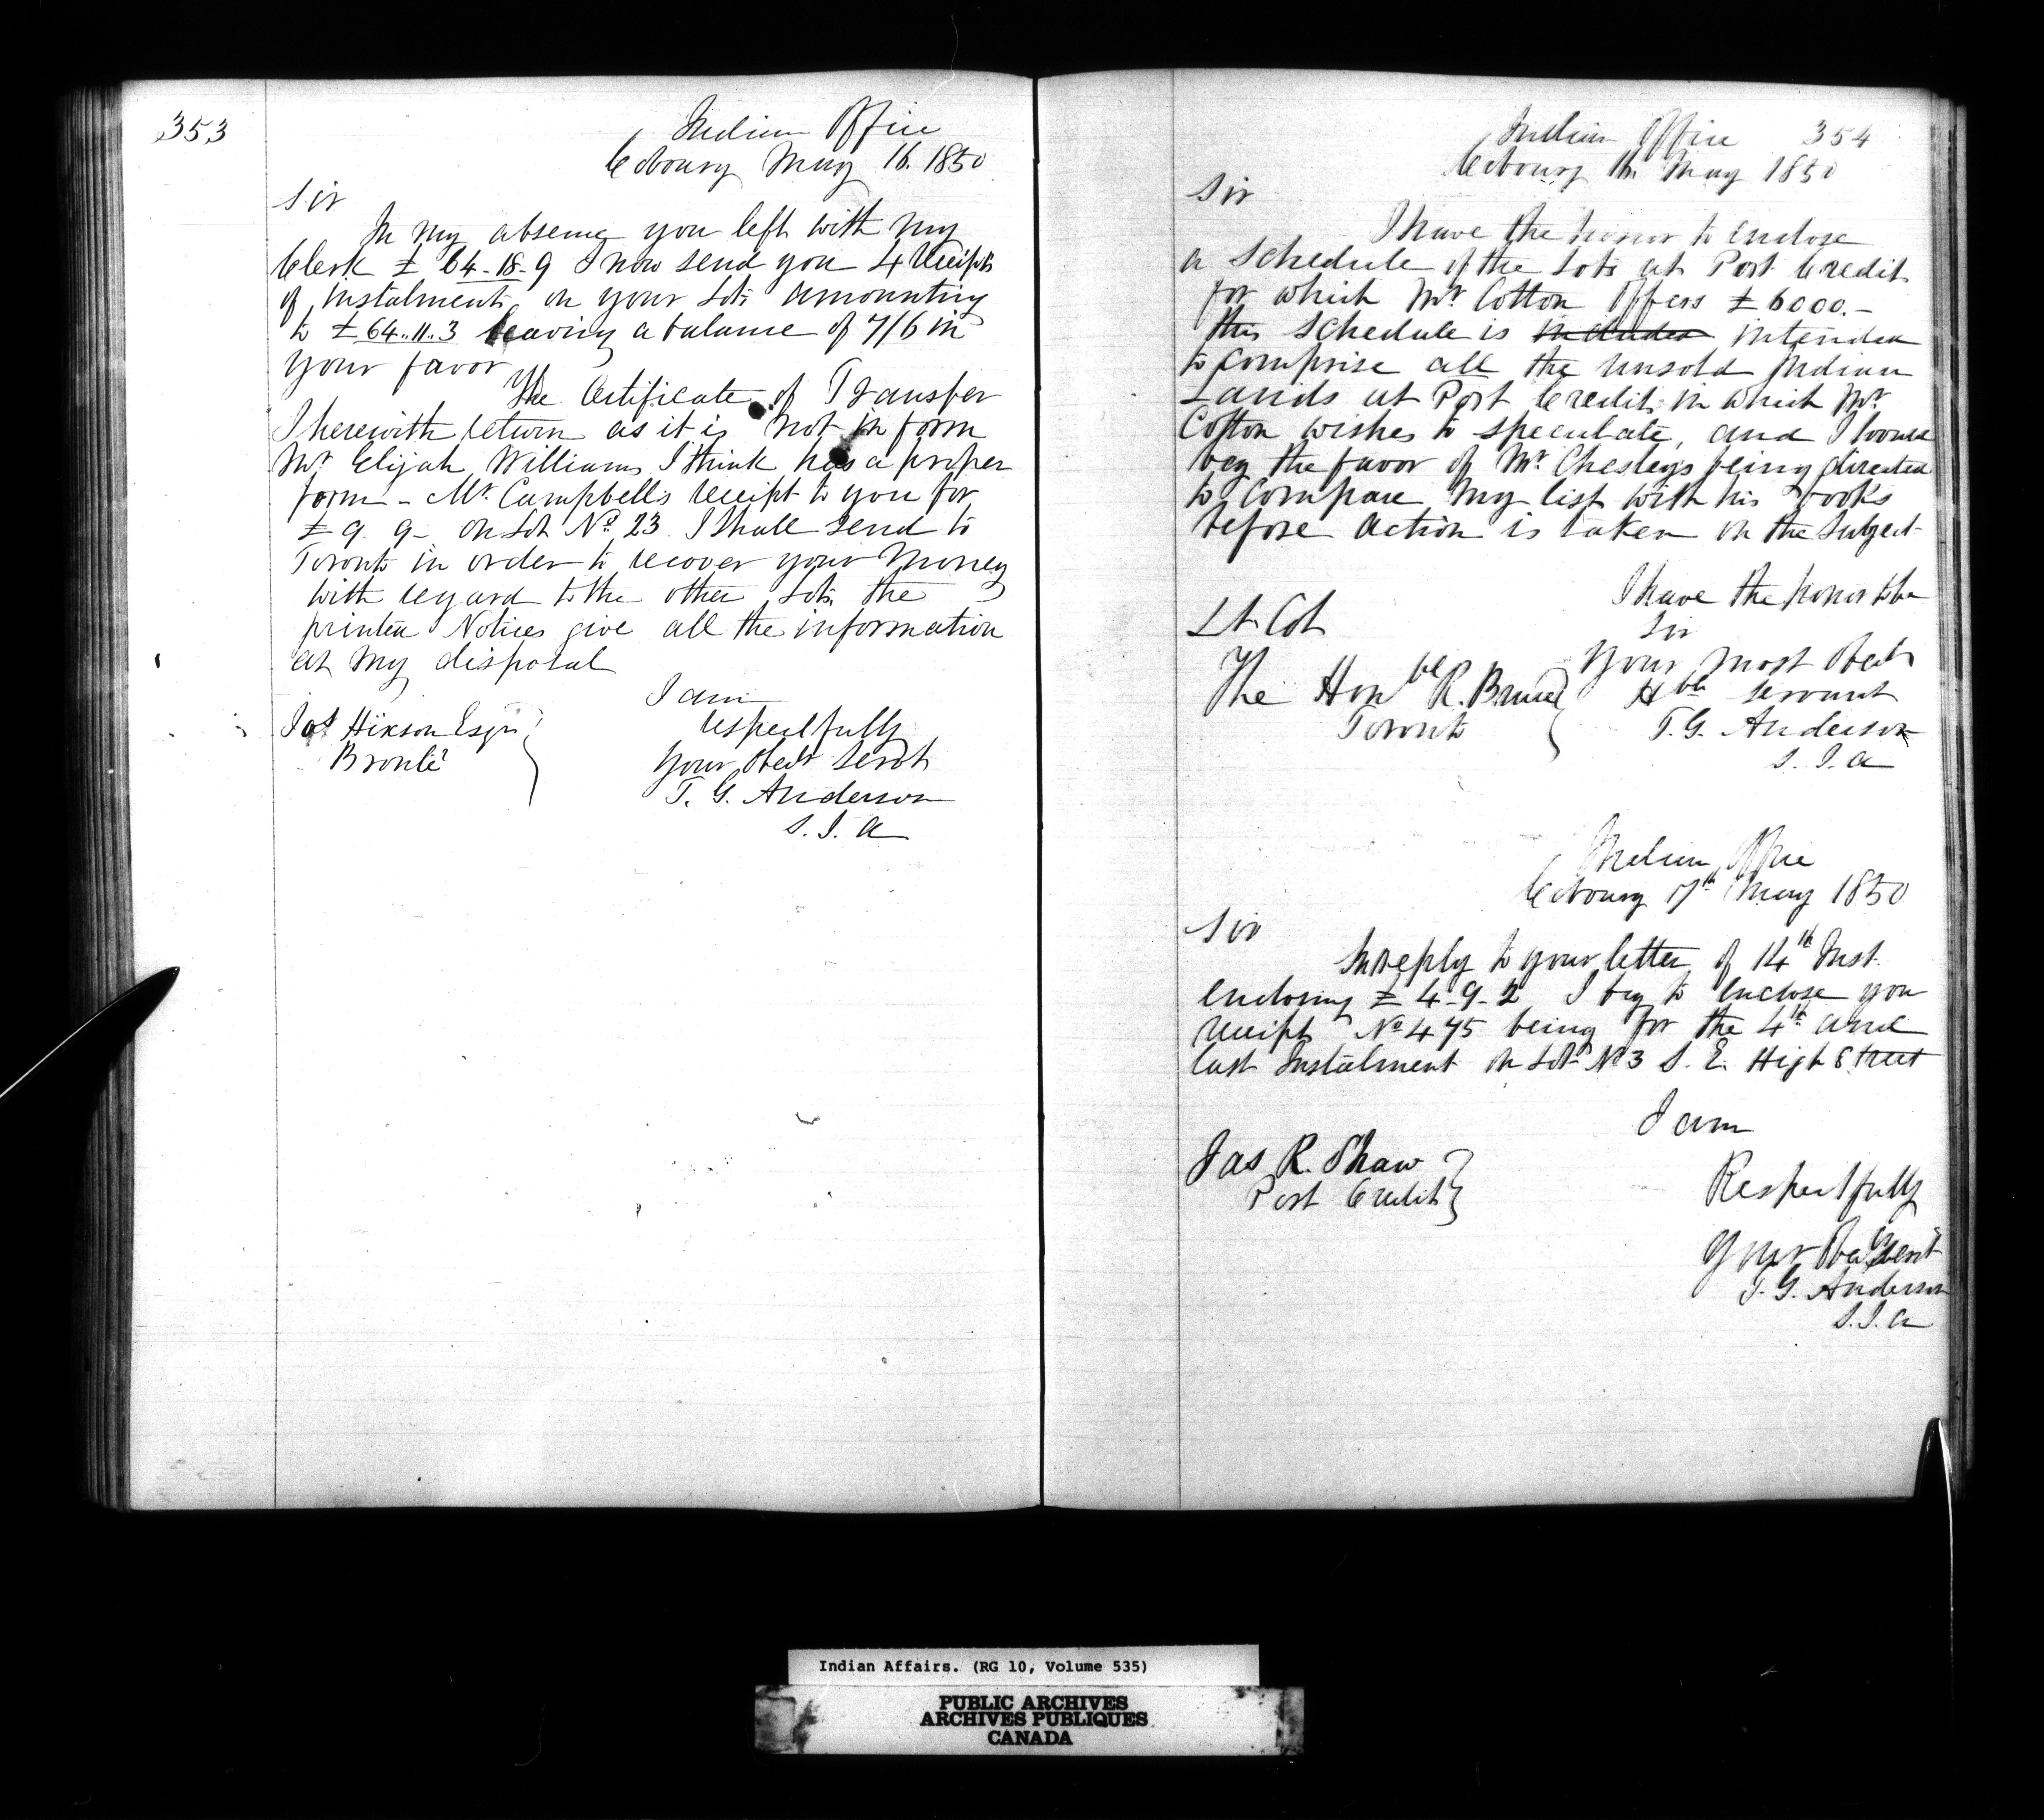 353
Indian Office
Cobourg May 16. 1850
Sir
In my absence you left with my
Clerk £ 64-18-9 I now send you 4 Receipts
of instalments on your Lots amounting
to £ 64..11..3 leaving a balance of 7/6 in
your favor
The Certificate of Transfer
I herewith return as it is not in form
Mr Elijah Williams I think has a proper
form - Mr Campbells receipt to you for
£ 9. 9 - on Lot No. 23. I shall send to
Toronto in order to recover your Money
with regard to the other Lots the
printed Notices give all the information
at my disposal
I am
respectfully
Your Obedt Servt
T. G. Anderson
S. I. A
Jos Hixson Esqr
Bronté
354
Indian Office
Cobourg 16. May 1850
Sir
I have the honor to enclose
a Schedule of the Lots at Port Credit
for which Mr Cotton Offers £ 6000.-
this Schedule is included intended
to comprise all the unsold Indian
Lands at Port Credit in which Mr
Cotton wishes to speculate, and I would
beg the favor of Mr Chesley's being directed
to Compare my list with his Books
before action is taken on the Subject
I have the honor to be
Sir
Your most Obedt
Hble Servant
T. G. Anderson
S. I. A
Lt Col
The Honble R. Bruce
Toronto
Indian Office
Cobourg 17th May 1850
Sir
In reply to your letter of 14th Inst.
enclosing £ 4-9-2 I beg to enclose you
receipt No 475 being for the 4th and
last Instalment on Lot No 3 S. E. High Street
I am
Respectfully
Your Obedt Servt
T. G. Anderson
S. I. A
Jas R. Shaw
Port Credit
Indian Affairs. (RG 10, Volume 535)
PUBLIC ARCHIVES
ARCHIVES PUBLIQUES
CANADA